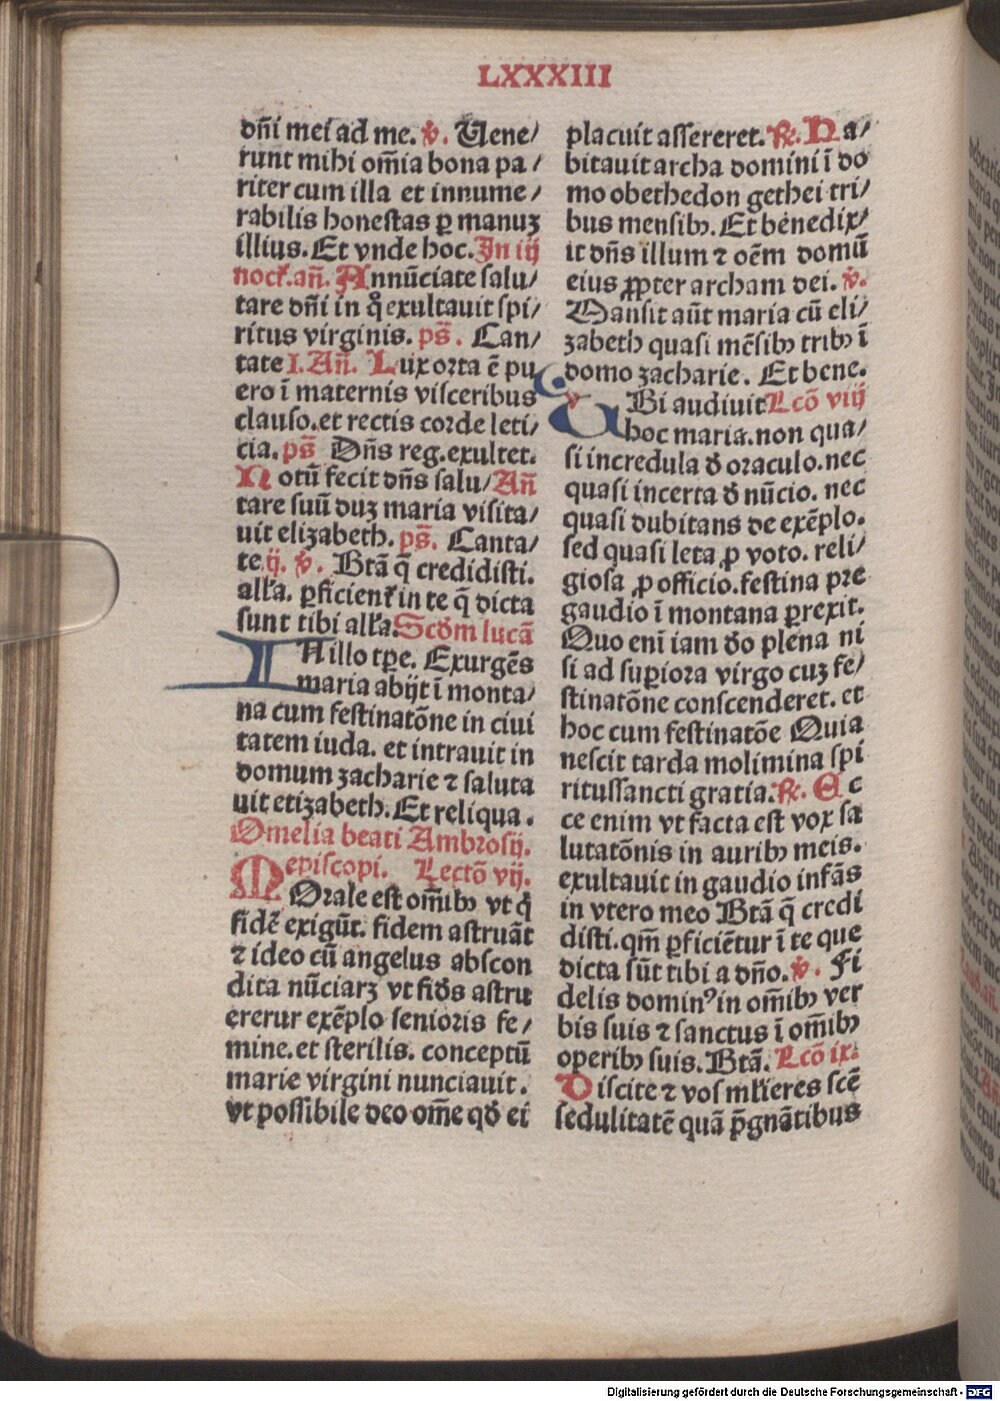 LXXXIII
dñi mei ad me. ꝟ. Uene/
runt mihi om̄ia bona pa/
riter cum illa et innume/
rabilis honestas ꝑ manuꝫ
illius. Et vnde hoc. In iij
noct̉. añ. Annūciate salu/
tare dñi in q̊ exultauit spi/
ritus virginis. ps̄. Can/
tate I. Añ. Lux orta ē pu
ero ī maternis visceribus
clauso. et rectis corde leti/
cia. ps̄ Dñs reg. exultet.
Notū fecit dñs salu/ Añ
tare suū duꝫ maria visita/
uit elizabeth. ps̄. Canta/
te. ij. ꝟ. Btā q̄ credidisti.
alľa. ꝑficient̉ in te q̄ dicta
sunt tibi alľa. Scd̄m lucā
IN illo tꝑe. Exurgēs
maria abijt ī monta/
na cum festinatōne in ciui
tatem iuda. et intrauit in
domum zacharie ⁊ saluta
uit etizabeth. Et reliqua.
Omelia beati Ambrosij.
episcopi. Lectō vij.
MOrale est om̄ibꝫ vt q̇
fidē exigūt. fidem astruāt
⁊ ideo cū angelus abscon
dita nūciarꝫ vt fid̄s astru
ererur exēplo senioris fe/
mine. et sterilis. conceptū
marie virgini nunciauit.
vt possibile deo om̄e qd̄ ei
placuit assereret. ℟. Ha/
bitauit archa domini ī do
mo obethedon gethei tri/
bus mensibꝫ. Et benedix/
it dñs illum ⁊ oēm domū
eius ꝓpter archam dei. ꝟ.
Mansit aūt maria cū eli/
zabeth quasi mēsibꝫ tribꝫ ī
domo zacharie. Et bene.
UBi audiuit Lcō viij
hoc maria. non qua/
si incredula d̄ oraculo. nec
quasi incerta d̄ nūcio. nec
quasi dubitans de exēplo.
sed quasi leta ꝓ voto. reli/
giosa ꝓ officio. festina pre
gaudio ī montana ꝑrexit.
Quo enī iam d̄o plena ni
si ad suꝑiora virgo cuꝫ fe/
stinatōne conscenderet. et
hoc cum festinatōe Quia
nescit tarda molimina spi
ritussancti gratia. ℟. Ec
ce enim vt facta est vox sa
lutatōnis in auribꝫ meis.
exultauit in gaudio infās
in vtero meo Btā q̄ credi
disti. qm̄ ꝑficiētur ī te que
dicta sūt tibi a dño. ꝟ. Fi
delis dominꝰ in om̄ibꝫ ver
bis suis ⁊ sanctus ī om̄ibꝫ
operibꝫ suis. Btā. Lcō ix.
Discite ⁊ vos mľieres scē
sedulitatē quā p̄gnātibus
Digitalisierung gefördert durch die Deutsche Forschungsgemeinschaft - DFG